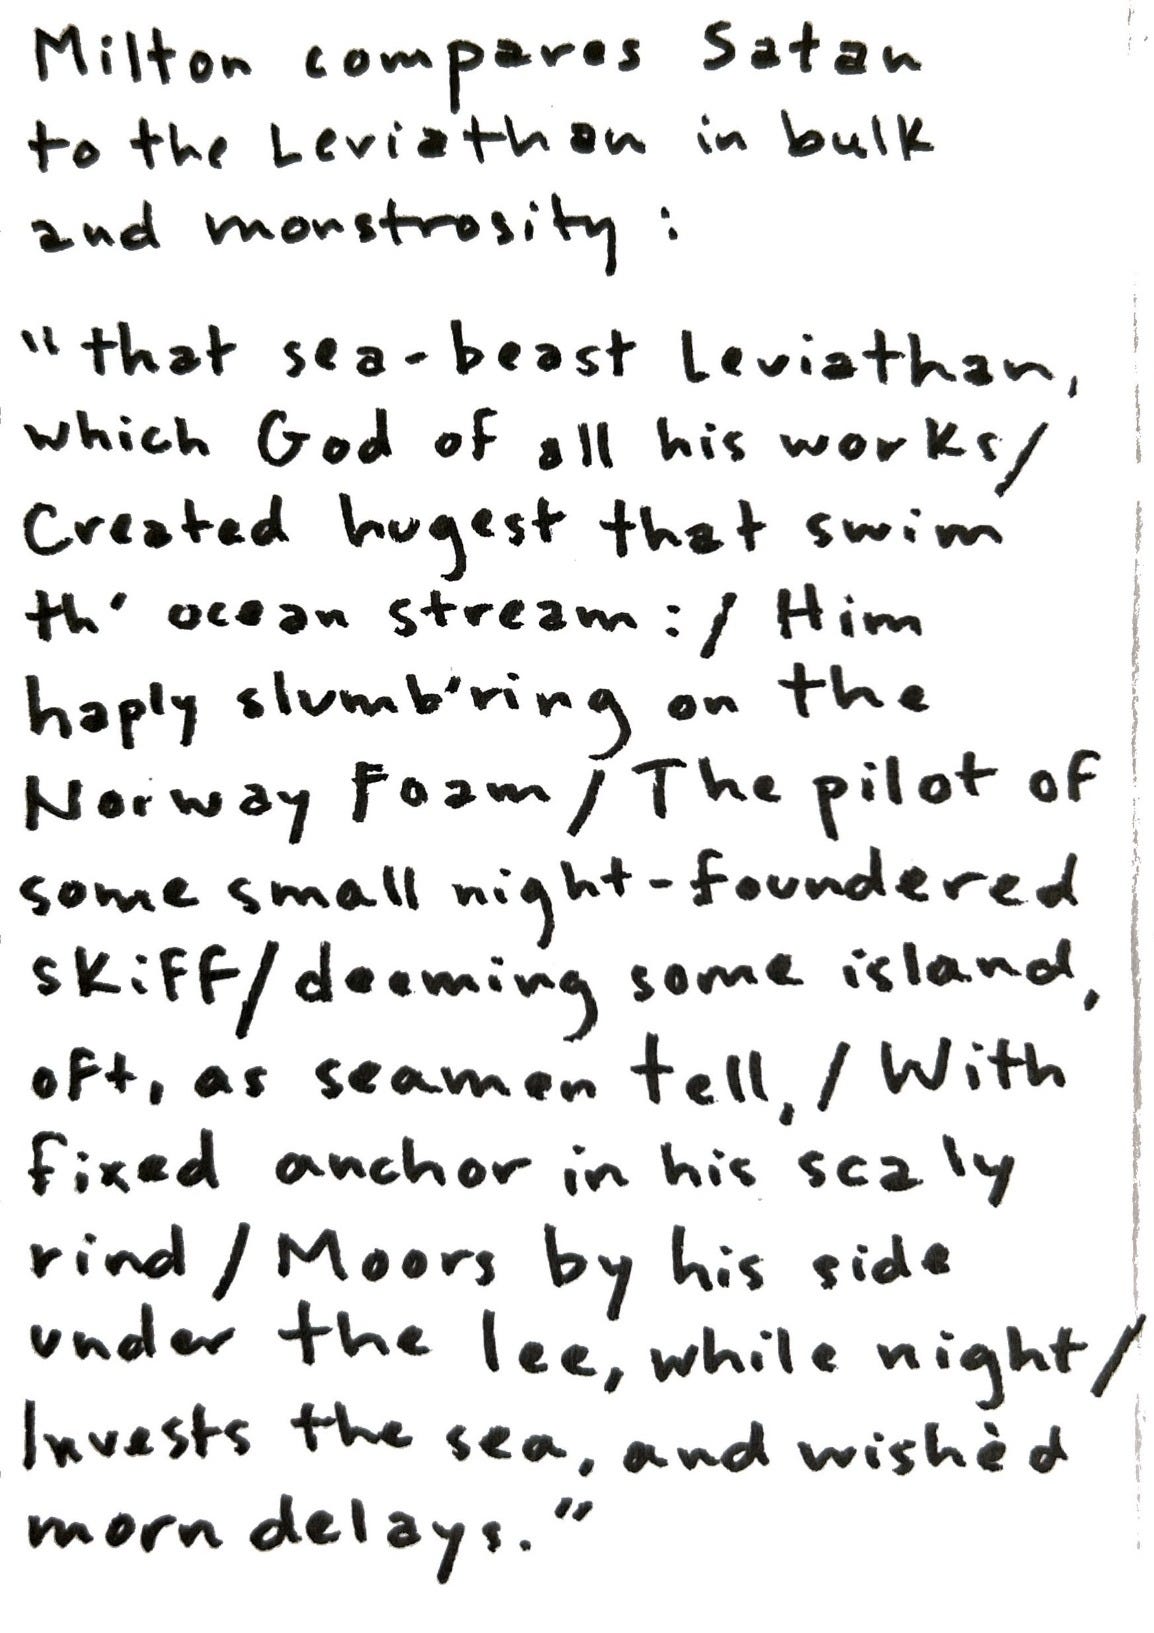 Milton compares Satan
to the Leviathan in bulk
and monstrosity:
"that sea-beast Leviathan,
which God of all his works/
Created hugest that swim
th' ocean stream:/ Him
haply slumb'ring on the
Norway Foam/ The pilot of
some small night-foundered
skiff/ deeming some island,
oft, as seamen tell,/ With
fixed anchor in his scaly
rind/ Moors by his side
under the lee, while night/
Invests the sea, and wishèd
morn delays."